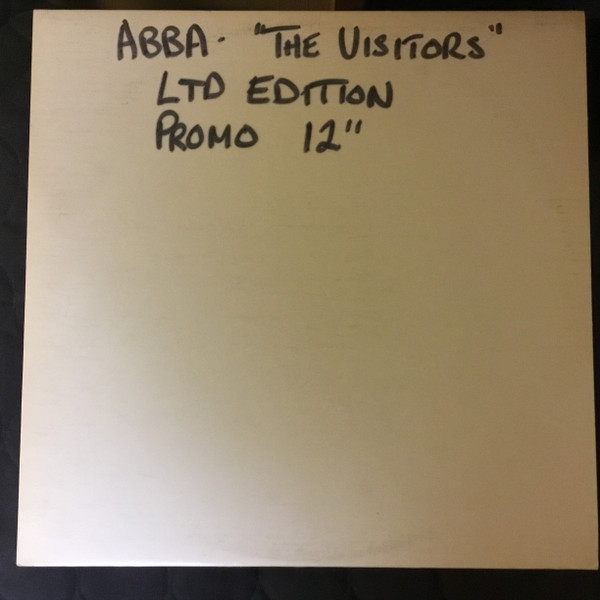 ABBA - "THE VISITORS"
LTD EDITION
PROMO 12"